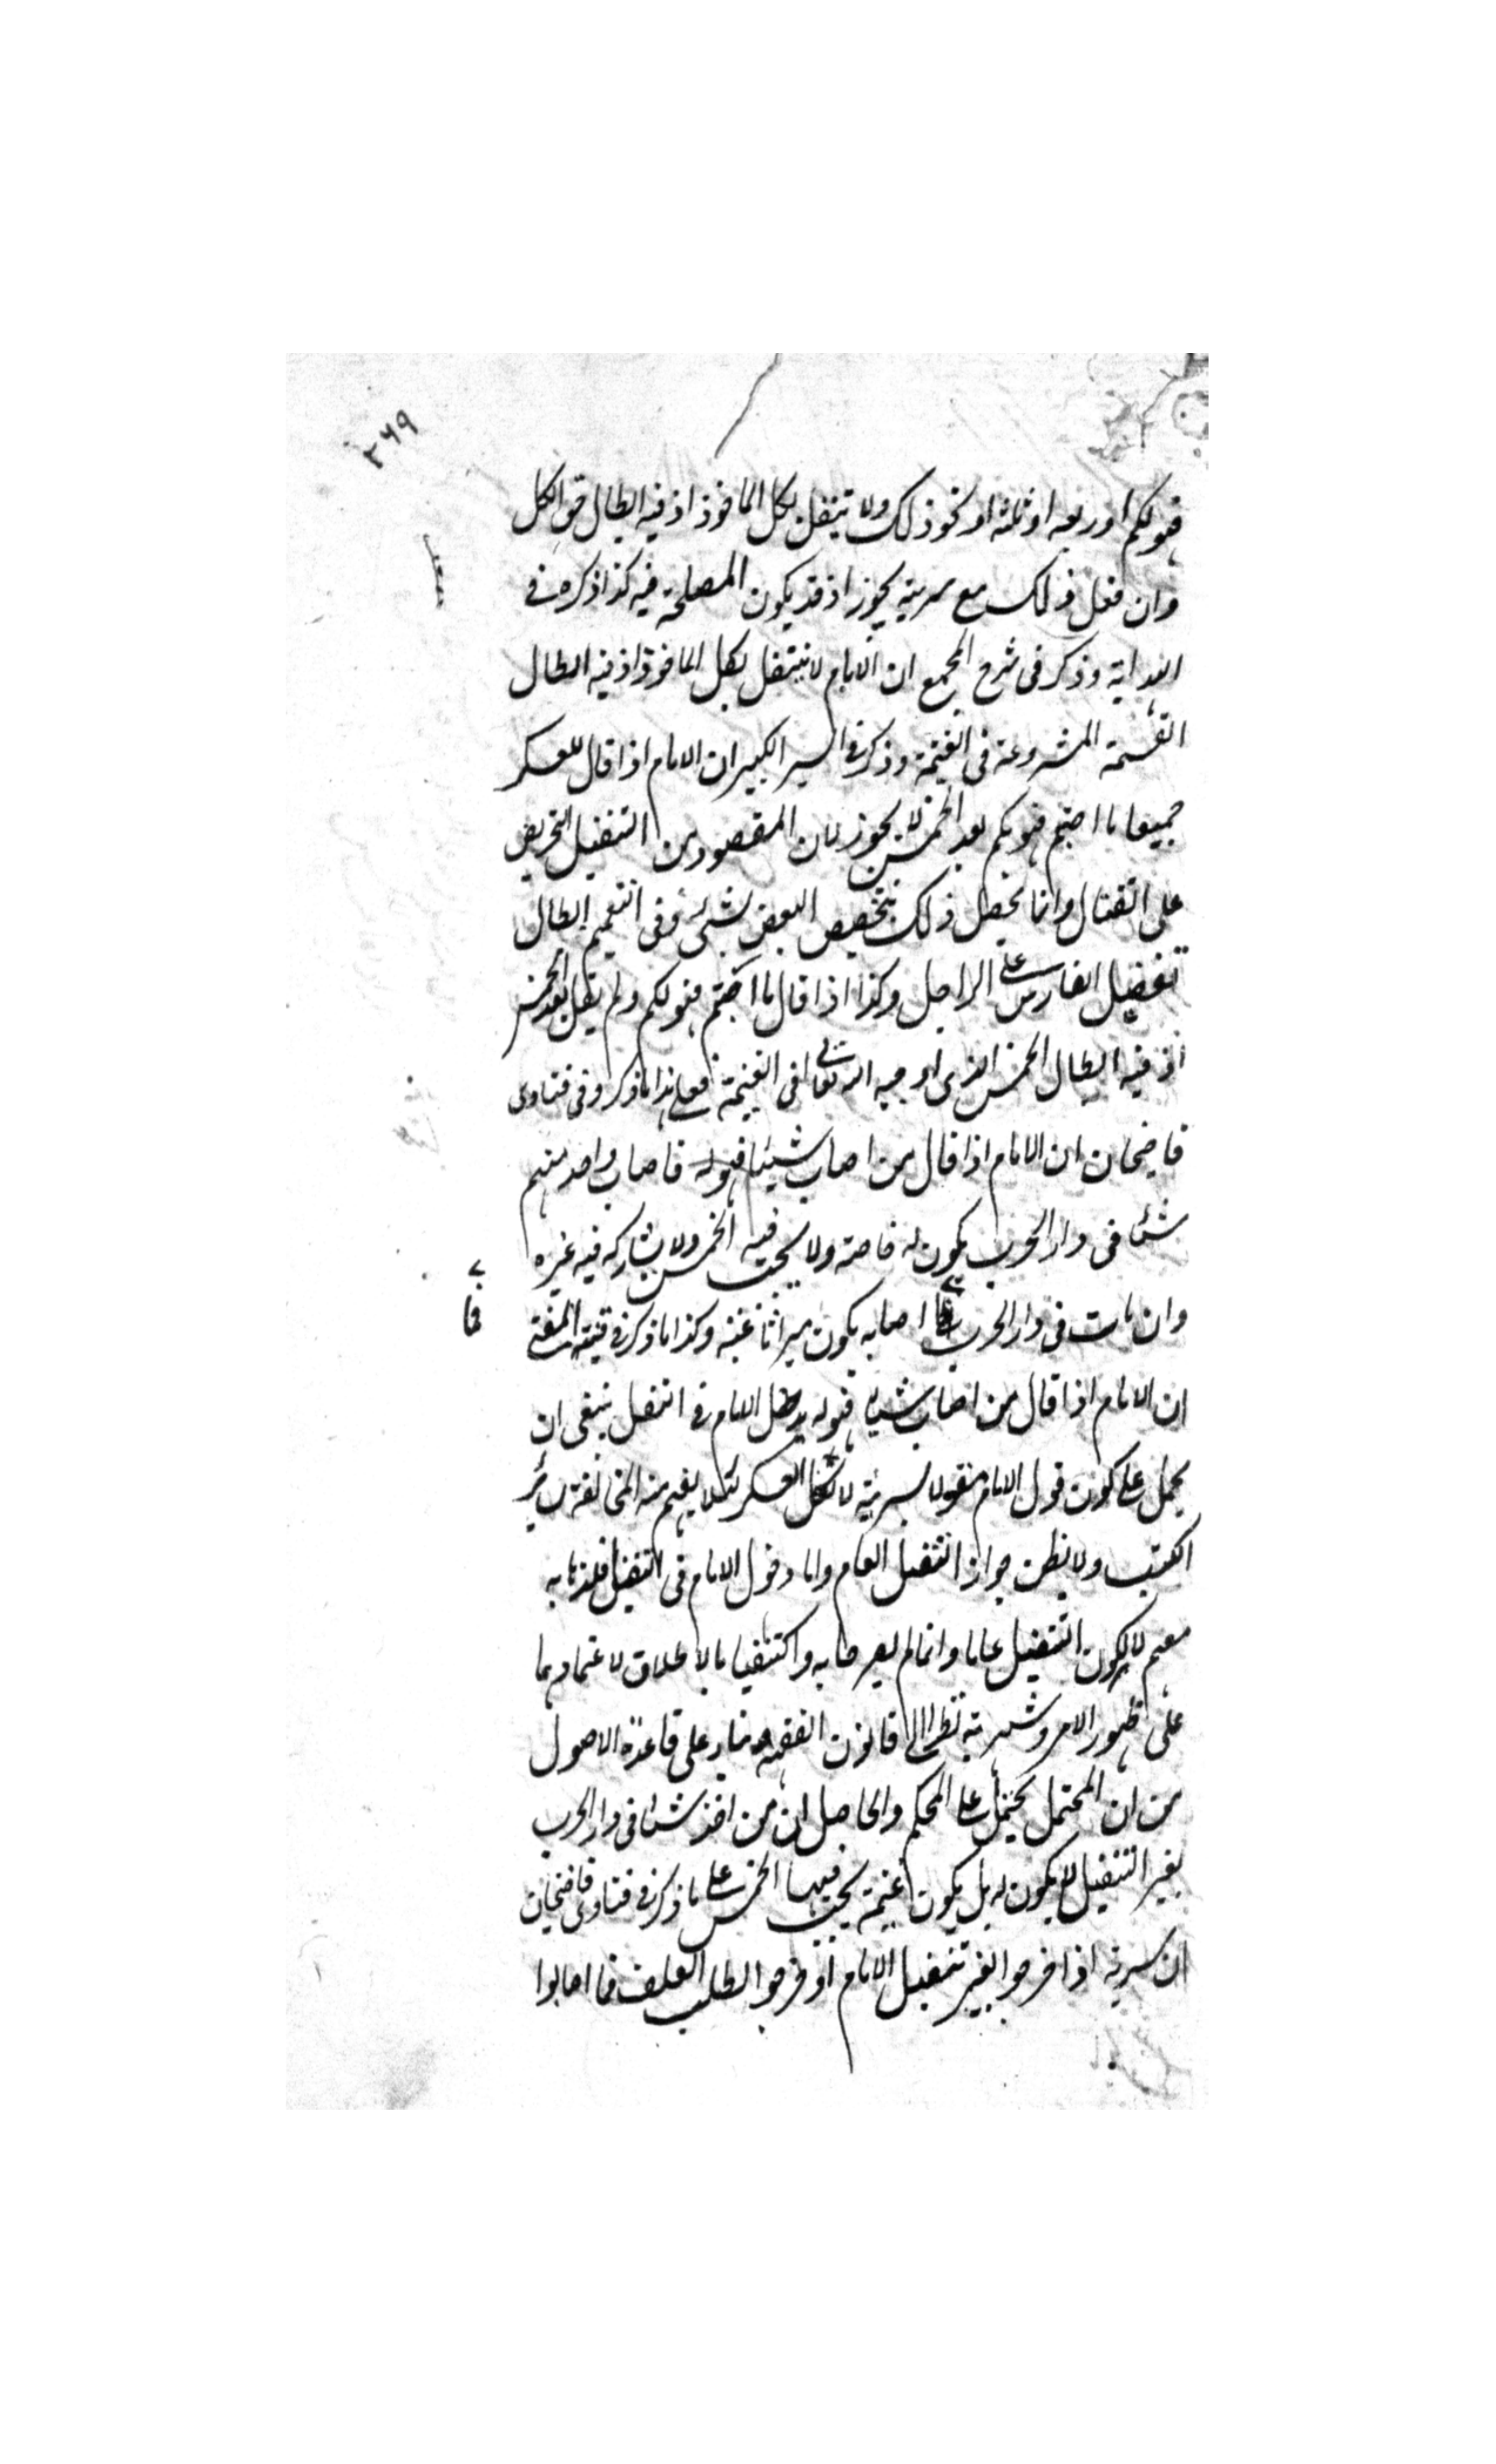 ٢٦٩
فهو لكم او ربعه او ثلثه او نحو ذلك ولا تنفل بكل المأخوذ اذ فيه ابطال حق الكل
وان فعل ذلك مع سرية يجوز اذ قد يكون المصلحة فيه كذا ذكره في
الهداية وذكر في شرح المجمع ان الامام لا يتنفل بكل المأخوذ اذ فيه ابطال
القسمة المشروعة في الغنيمة وذكر في السير الكبير ان الامام اذا قال للعسكر
جميعا ما اصبتم فهو لكم بعد الخمس لا يجوز لان المقصود من التنفيل التحريض
على القتال وانما يحصل ذلك بتخصيص البعض بشئ وفي التعميم ابطال
تفضيل الفارس على الراجل وكذا اذا قال ما اصبتم فهو لكم ولم يقل بعد الخمس
اذ فيه ابطال الخمس الذي اوجبه الله تعالى في الغنيمة فعلى هذا ما ذكر وفي فتاوى
قاضيخان ان الامام اذا قال من اصاب شيئا فهو له فاصاب واحد منهم
شئا في دار الحرب يكون له خاصة ولا يجب فيه الخمس ولا يشاركه فيه غيره
وان مات في دار الحرب مما اصابه يكون ميراثا عنه وكذا ما ذكر في قنية المفتي
ان الامام اذا قال من اصاب شيئا فهو له يدخل الامام في التنفل ينبغي ان
يحمل على كون قول الامام مقولا لسرية لا لكل العسكر لئلا يفهم منه المخالفة لسائر
الكتب ولا يظن جواز التنفيل العام واما دخول الامام في التنفيل فلذهابه
معهم لا لكون التنفيل عاما وانما لم يصرحا به واكتفيا بالاطلاق لاعتمادهما
على ظهور الامر وشهرته نظرا الى قانون الفقه وبناء على قاعدة الاصول
من ان المحتمل يحمل على المحكم والحاصل ان من اخذ شئا في دار الحرب
بغير التنفيل لا يكون له بل يكون غنيمة يجب فيها الخمس على ما ذكر في فتاوى قاضيخان
ان سرية اذا خرجوا بغير تنفيل الامام او خرجوا لطلب العلف فما اصابوا